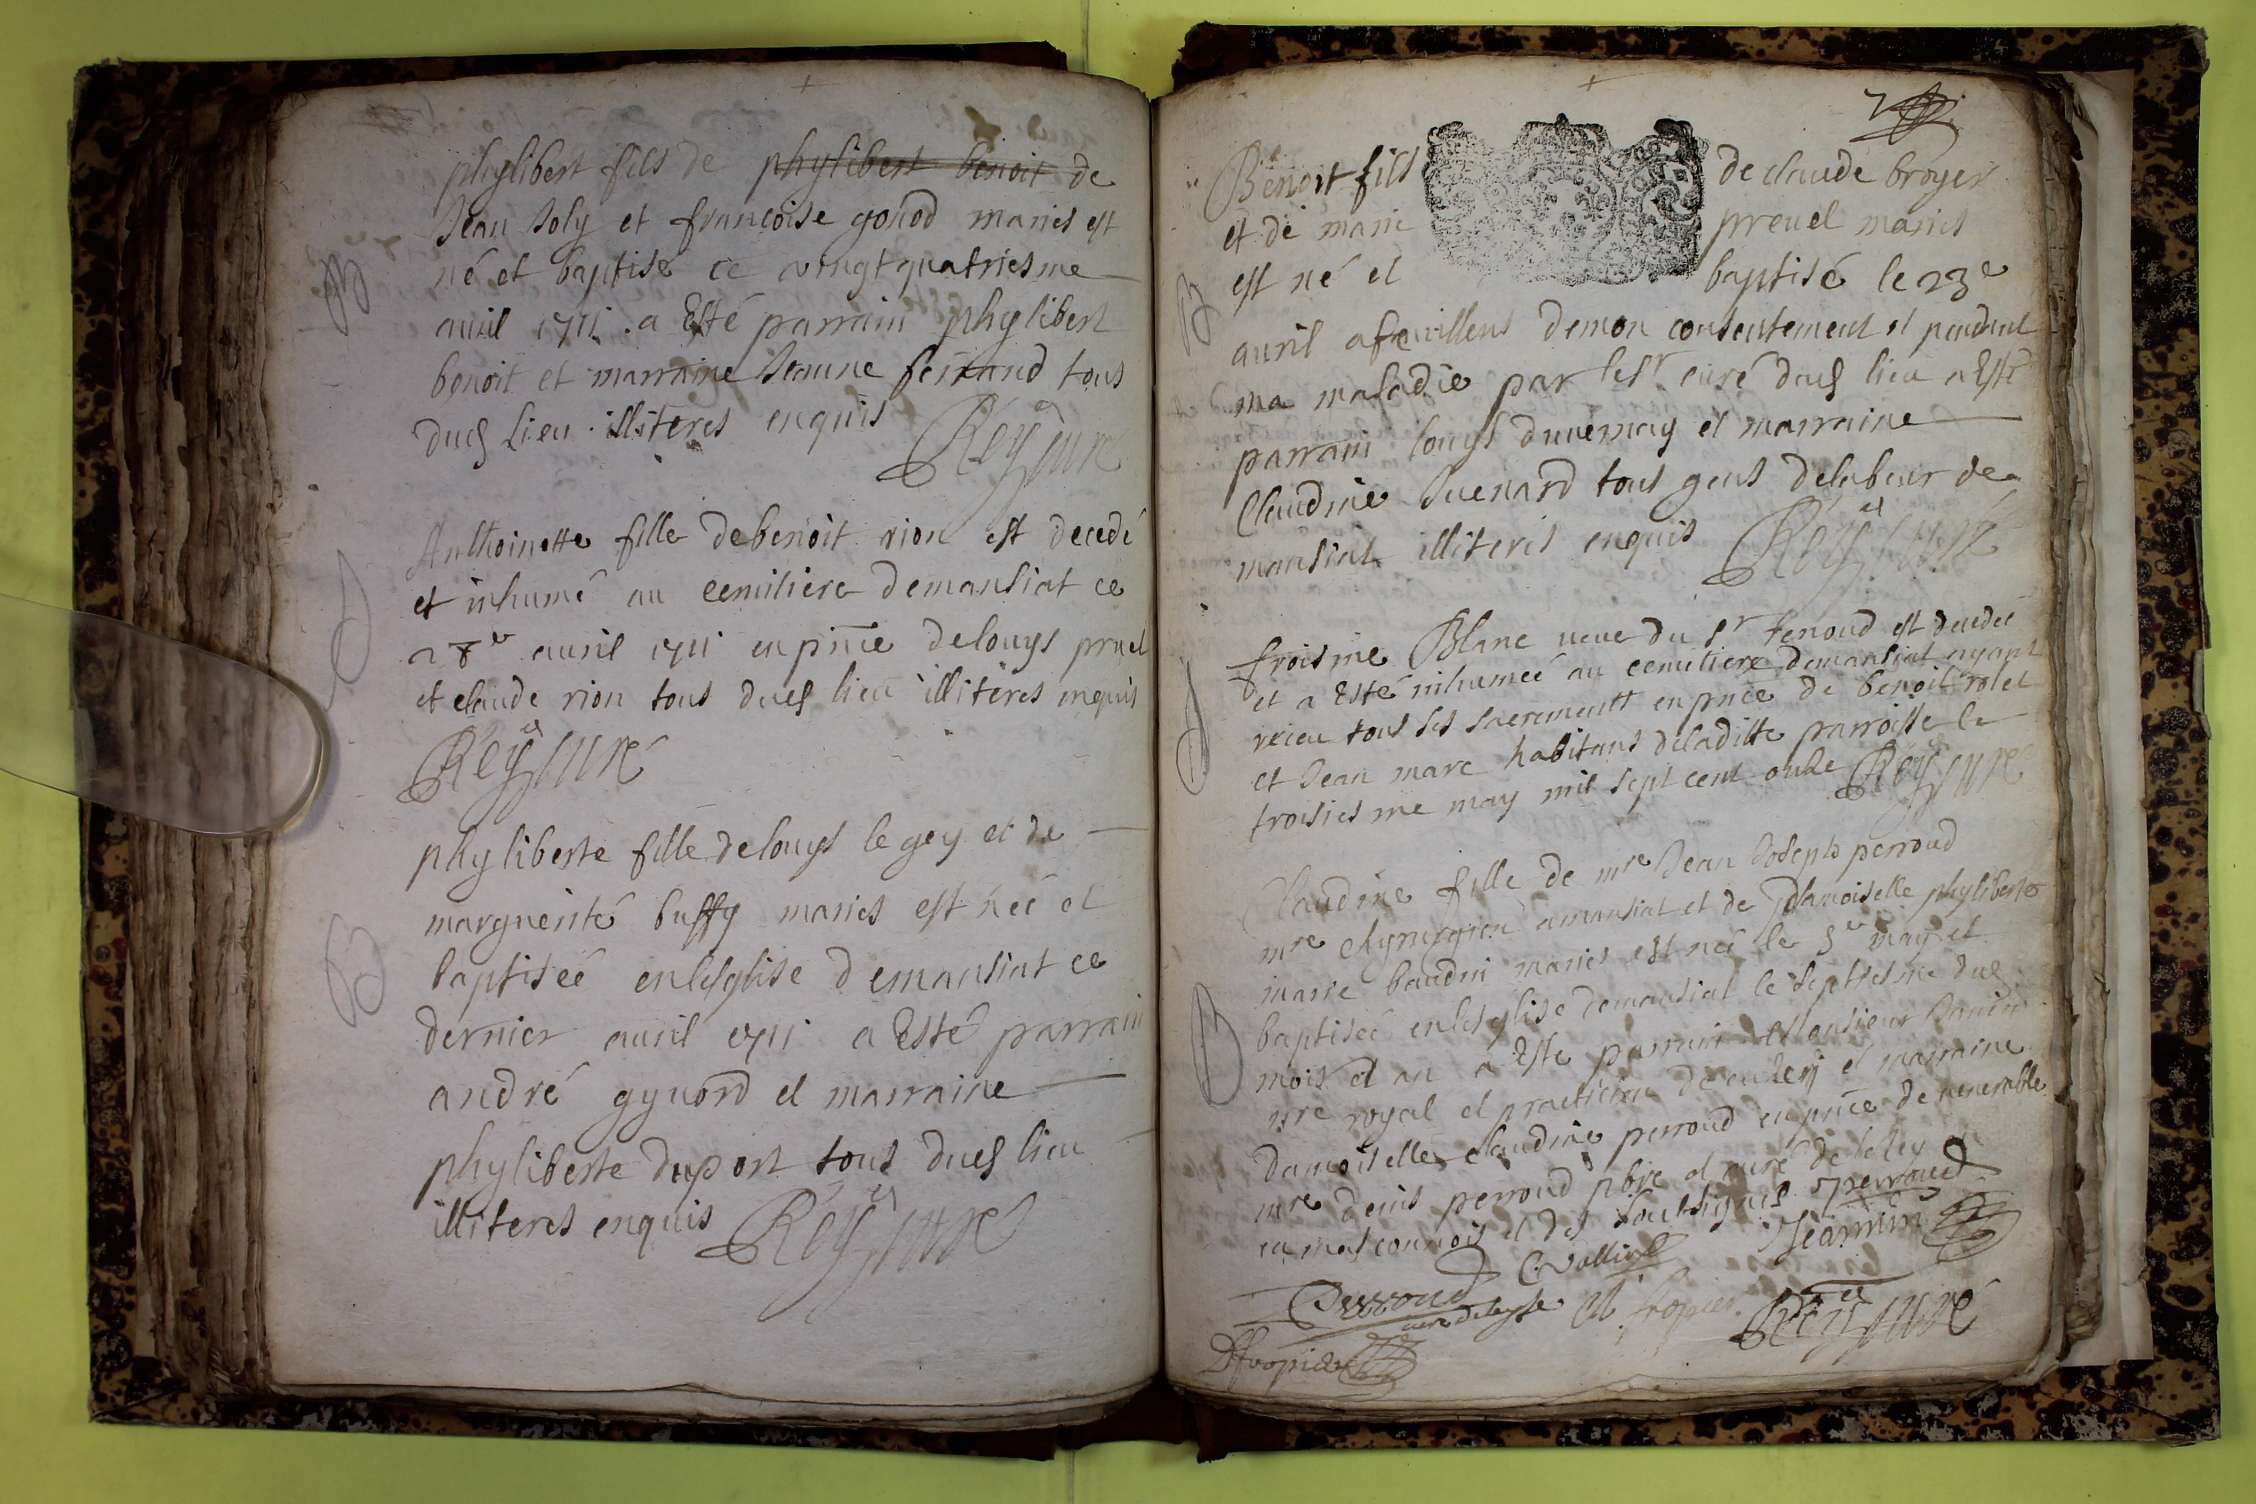 phylibert fils de phylibert benoit de
Jean Joly et françoise gonod mariés est
né et baptisé ce vingt quatriesme
avril 1711 . a Esté parrain phylibert
benoit et marraine Jeanne ferrand tous
dud lieu . illiteres enquis
Rey curé
Anthoinette fille de benoit rion est decedé
et inhumé au cemitiere de mansiat ce
28e avril 1711 en pnce de louys pruel
et claude rion tous dud lieu illiteres enquis
Rey curé
phyliberte fille de louys le gey et de
marguerite buffy mariés est née et
baptisée en lesglise de mansiat ce
dernier avril 1711 a Esté parrain
andré gyvord et marraine
phyliberte duport tous dud lieu
illiteres enquis
Rey curé
B
B
7
Benoit fils de claude broyer
et de marie prevel mariés
est né et baptisé le 23e
avril a feuillens de mon consentement et pendant
ma maladie par le sr curé dud lieu a Esté
parrain louys duvernay et marraine
Claudine Juenard tous gens de labeur de
mansiat illiteres enquis
Rey curé
froisine Blanc veuve du sr fenoud est decedée
et a Esté inhumée au cemitiere de mansiat ayant
receu tous ses sacrements en pnce de benoit rolet
et Jean marc habitans de laditte parroisse le
troisiesme may mil sept cent onze Rey curé
Claudine fille de mre Jean Joseph perroud
mre chyrurgien a mansiat et de damoiselle phyliberte
marie baudin mariés est née le 5e may et
baptisée en lesglise de mansiat le septiesme dud
mois et an a Este parrain Monsieur
nre royal et practicien de et marraine
damoiselle claudine perroud en pnce de venerable
mre denis perroud pbre et curé de
en masconnois et des soubsignés perroud
Jeannin
Perroud
C
Rey curé
B
B